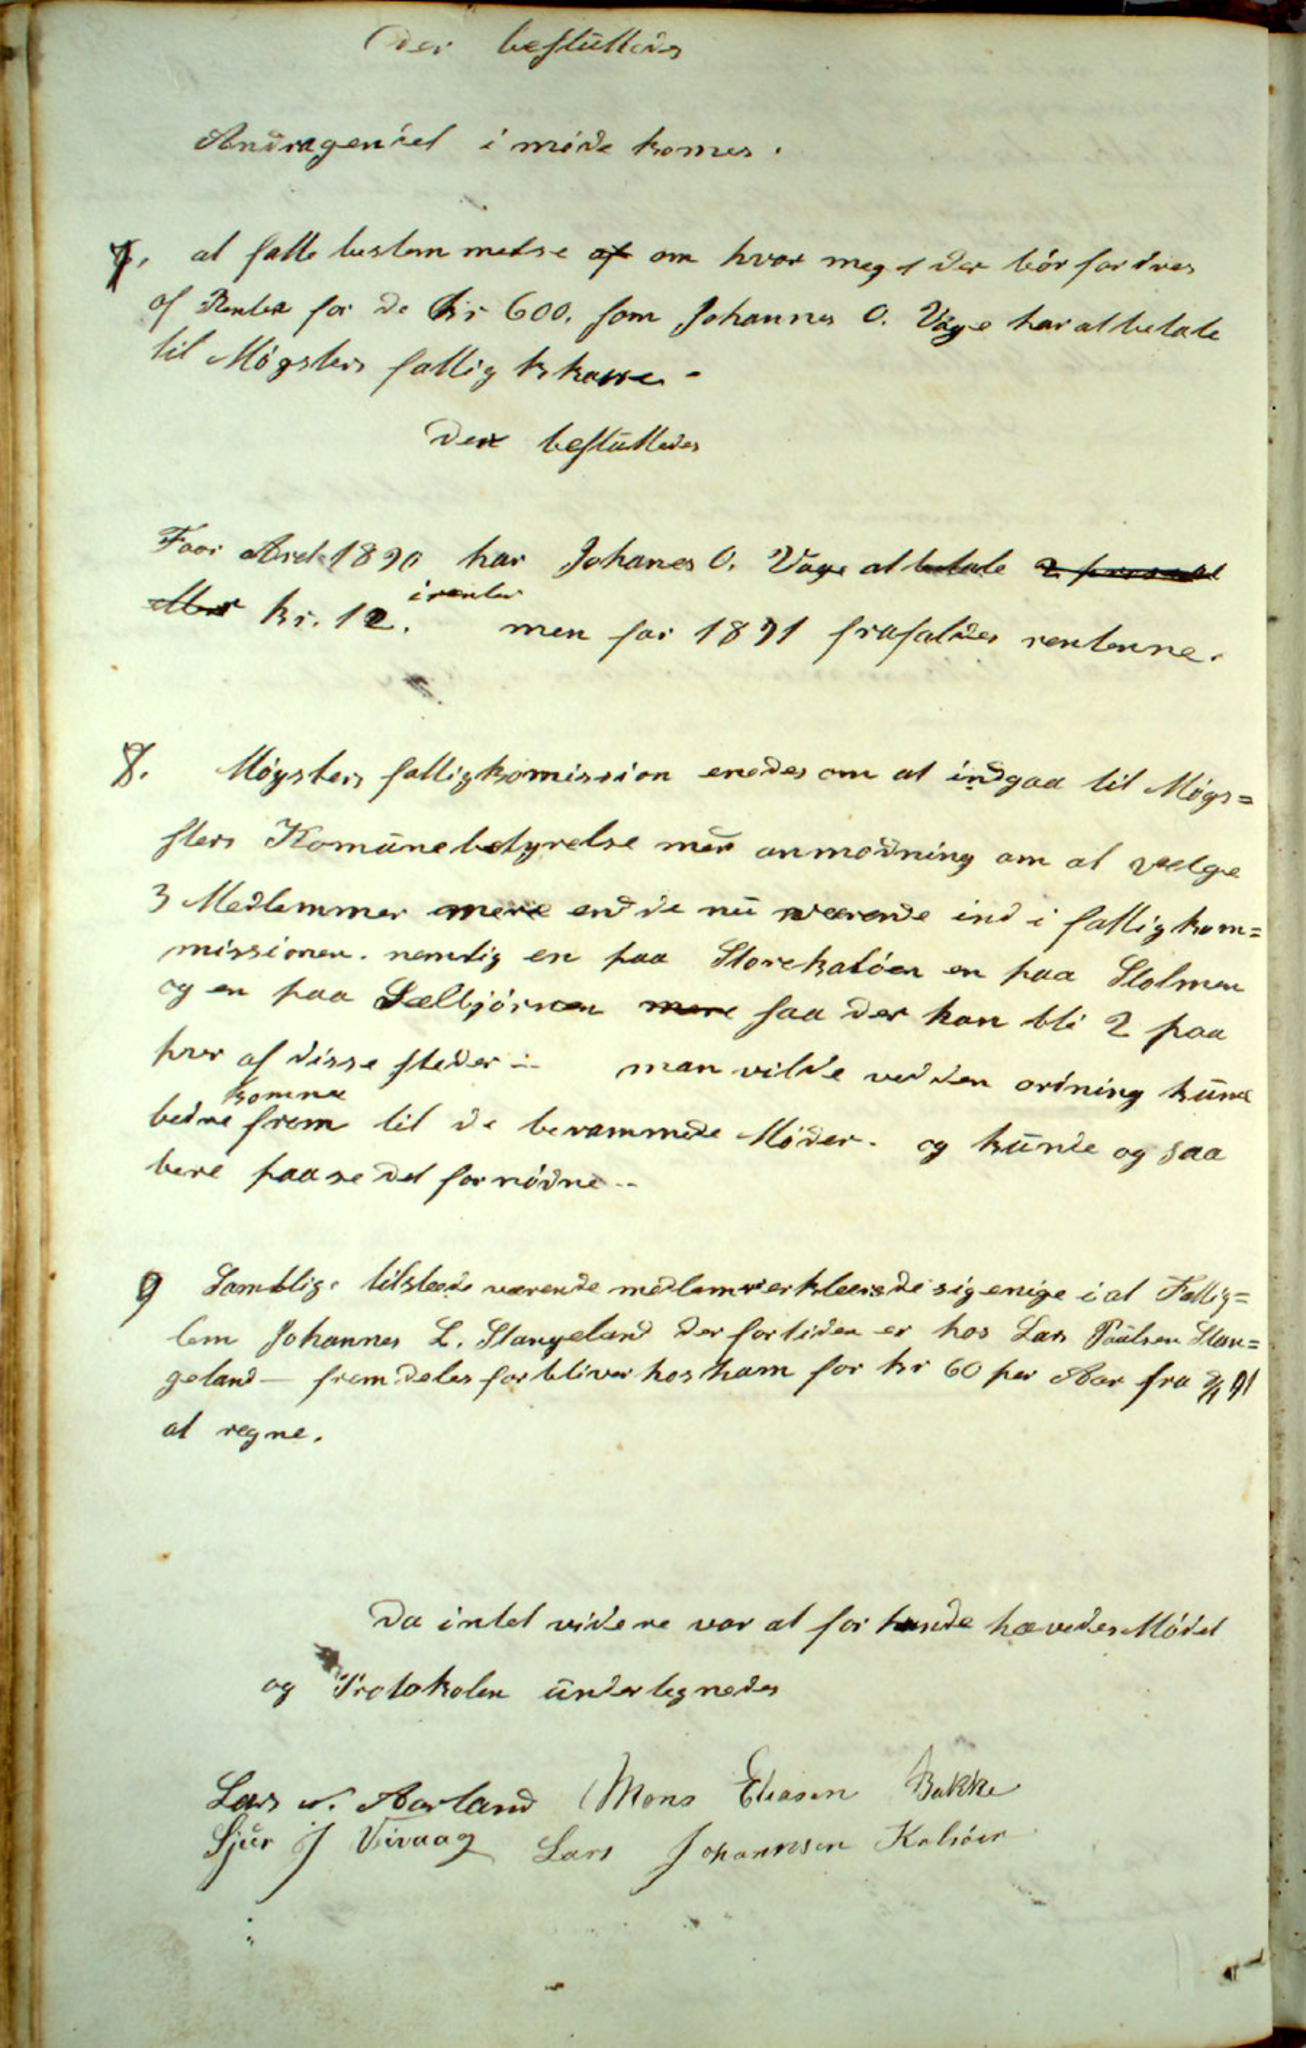 Der besluttedes
Andragendet i møde komes.
7. at fatte bestemmelse af om hvor meget der bør fordres
af Renter for de kr 600. som Johannes O. Våge har at betale
til Møgsters fattigkkasse -
Der besluttedes
Foor Aret 1890 har Johanes O. Våge at betale 2 prosent
eller kr. 12. i renter men for 1891 frafaldes rentenne.
8. Møgsters fattigkomission enedes om at indgaa til Møgs=
sters Komunebestyrelse med anmodning om at velge
3 Medlemmer mere end de nu værende ind i fattigkom=
missionen. nemlig en paa Storekalsøen en paa Stolmen
og en paa Sælbjørnen mere saa der kan bli 2 paa
hver af disse steder - man vilde ved den ordning kune
bedre komme frem til de berammede Møder. og kunde og saa
bere paase det fornødne -
9 Samtlige tilstede værende medlemer erkleerede sig enige i at Fattig=
lem Johannes L. Stangeland der for tiden er hos Lars Paulsen Stan=
geland - fremdeles forbliver hos ham for kr 60 per Aar fra 2/1 91
at regne.
Da intet videre var at for hande hævedes Mødet
og Protokolen undertegnedes
Lars N. Aarland Mons Eliasen Bakke
Sjur J Vivaag Lars Johannesen Kalsøen